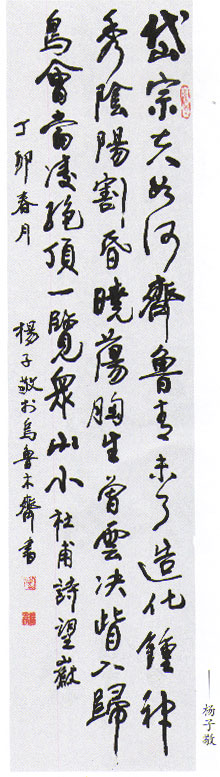 岱宗夫如何齊魯青未了造化鍾神
秀陰陽割昏曉蕩胸生曾雲决眥入歸
鳥會當凌絕頂一覽眾山小 杜甫詩望嶽
丁卯春月 楊子敬於烏魯木齊書
杨子敬